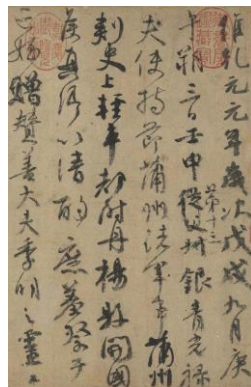 維乾元元年歲次戊戌九月庚
午朔三日壬申第十三從父叔銀青光祿
夫使持節蒲州諸軍事蒲州
刺史上輕車都尉丹楊縣開國
侯真卿以清酌庶羞祭于
亡姪贈贊善大夫季明之靈曰